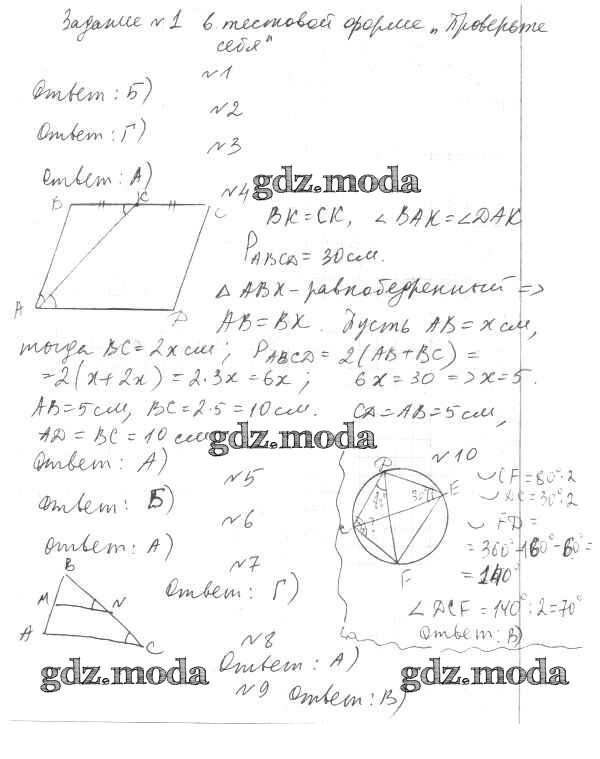 Задание №1 в тестовой форме „Проверьте
себя"
№1
Ответ: Б)
№2
Ответ: Г)
№3
Ответ: А)
gdz.moda
№4
B K C
A D
BK = CK, ∠BAK = ∠DAK
P ABCD = 30 см.
△ ABK – равнобедренный =>
AB = BK. Пусть AB = x см,
тогда BC = 2x см; P ABCD = 2(AB + BC) =
= 2(x + 2x) = 2·3x = 6x; 6x = 30 => x = 5.
AB = 5 см, BC = 2·5 = 10 см. CD = AB = 5 см,
AD = BC = 10 см
gdz.moda
Ответ: А)
№5
Ответ: Б)
№6
Ответ: А)
№7
B
M N
A C
Ответ: Г)
№8
Ответ: А)
№9
Ответ: В)
№10
E
30°
?
F
◡CF = 80°·2
= 30°·2
◡ FD =
= 360° - 160° - 60° =
= 140°
∠DCF = 140° : 2 = 70°
Ответ: В)
gdz.moda
gdz.moda